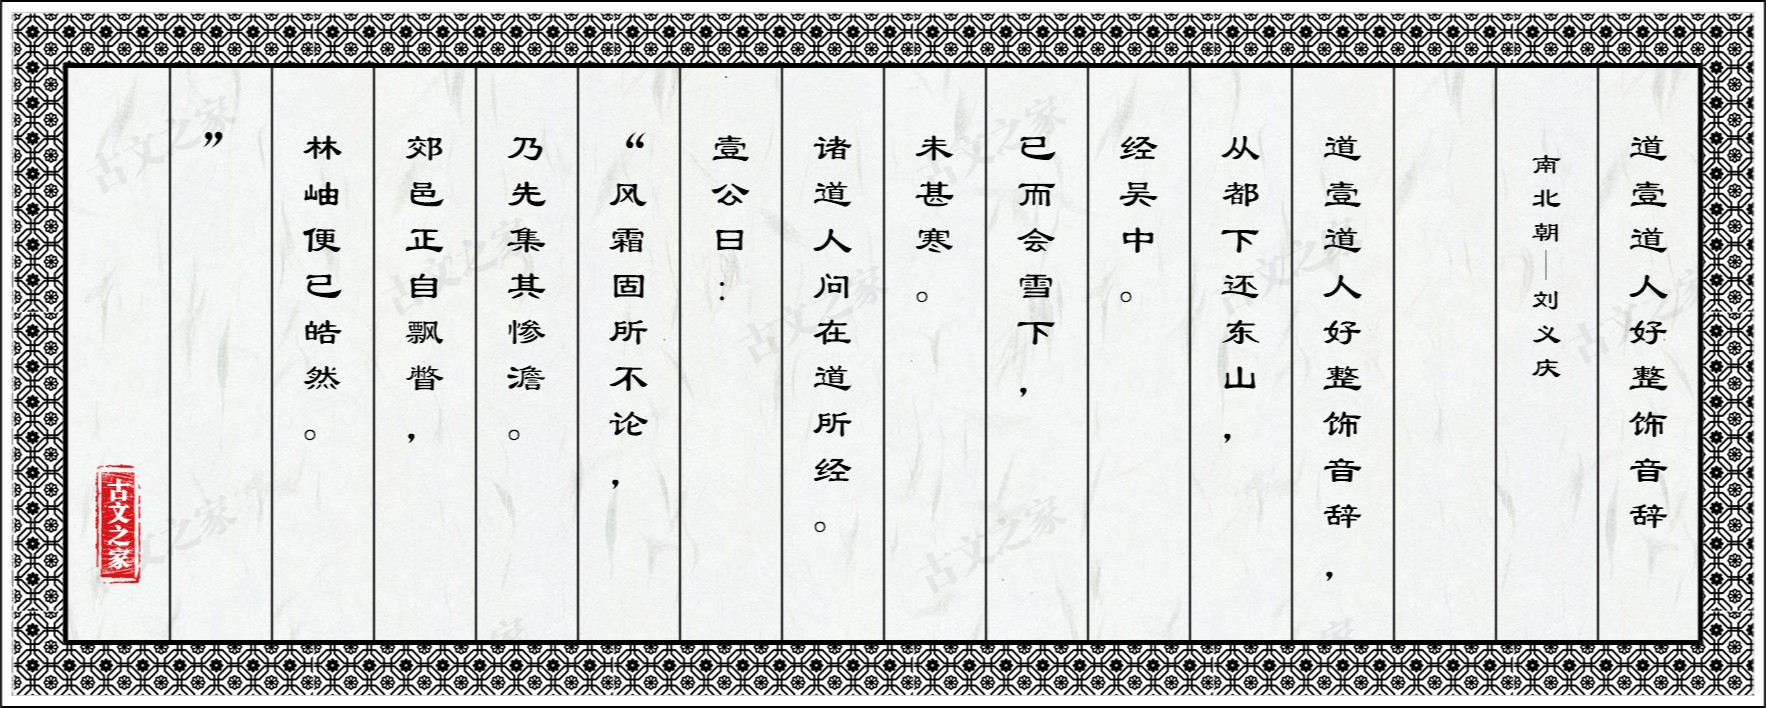 道壹道人好整饰音辞
南北朝—刘义庆
道壹道人好整饰音辞，
从都下还东山，
经吴中。
已而会雪下，
未甚寒。
诸道人问在道所经。
壹公曰：
“风霜固所不论，
乃先集其惨澹。
郊邑正自飘瞥，
林岫便已皓然。
”
古文之家